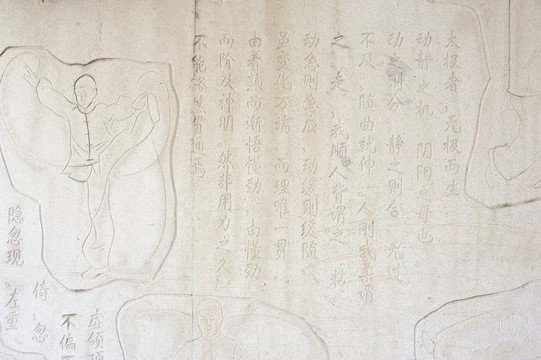 太极者，无极而生，
动静之机，阴阳之母也。
动之则分，静之则合。无过
不及，随曲就伸。人刚我柔谓
之“走”，我顺人背谓之“粘”。
动急则急应，动缓则缓随。
虽变化万端，而理唯一贯。
由着熟而渐悟懂劲，由懂劲
而阶及神明。然非用力之久，
不能豁然贯通焉。
虚领顶
不偏
倚，忽
隐忽现。左重